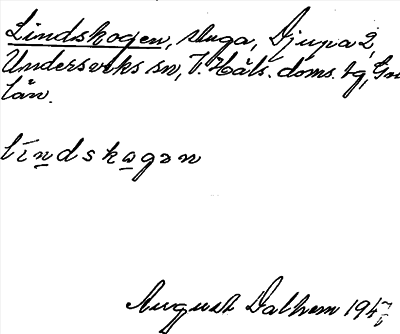 Lindskogen, stuga, Djupa 2,
Undersviks sn, V. Häls. doms. tg, Gn
län.
líndskagən
August Dalhem 194